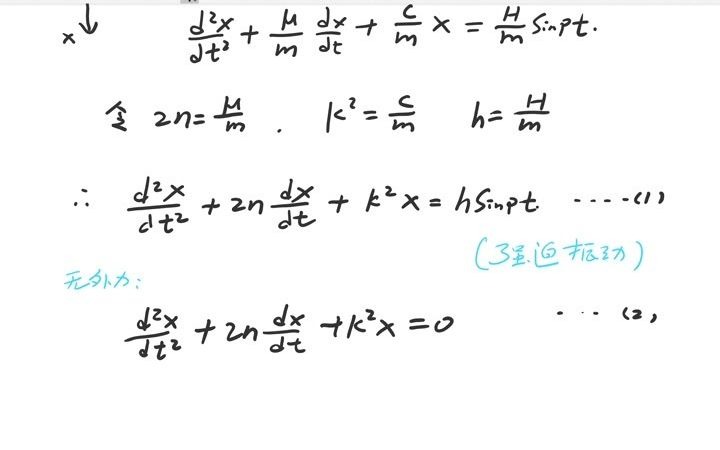 x↓ d²x/dt² + μ/m dx/dt + c/m x = H/m Sinpt.
令 2n = μ/m . k² = c/m h = H/m
∴ d²x/dt² + 2n dx/dt + k²x = hSinpt. ·····(1)
(强迫振动)
无外力:
d²x/dt² + 2n dx/dt + k²x = 0 ···(2)